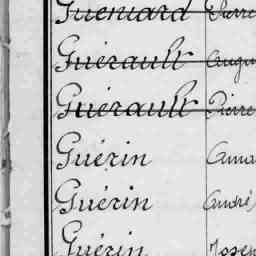 Guéniard Pierre
Guérault Augu
Guérault Pierre
Guérin
Guérin André
Guérin Josep